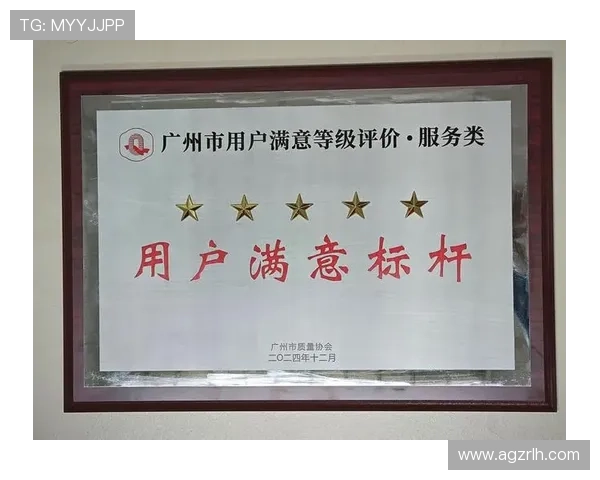 TG: MYYJJPP
广州市用户满意等级评价·服务类
用户满意标杆
广州市质量协会
二〇二四年十二月
www.agzrlh.com